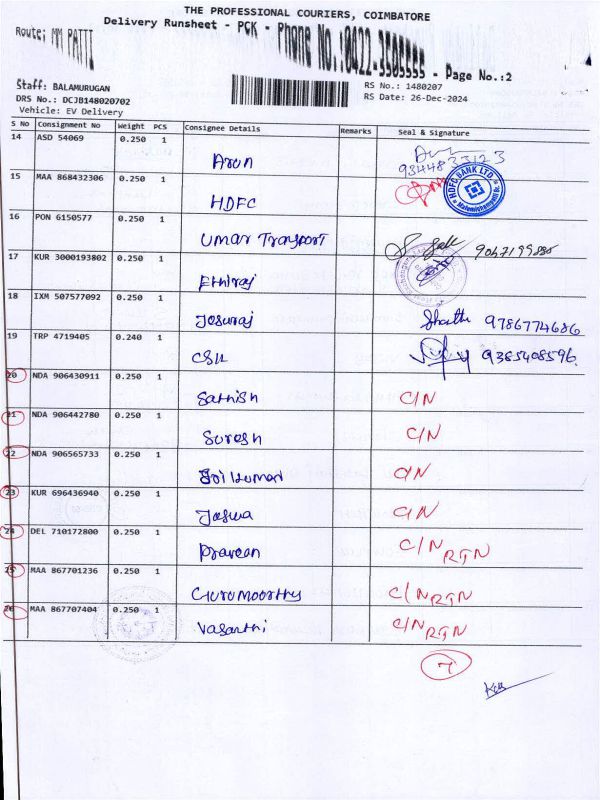 THE PROFESSIONAL COURIERS, COIMBATORE
Delivery Runsheet - PCK - Phone No.:0422-3505555 - Page No.:2
Route: MM PATTI
Staff: BALAMURUGAN
DRS No.: DCJB148020702
Vehicle: EV Delivery
RS No.: 1480207
RS Date: 26-Dec-2024
S No Consignment No Weight PCS Consignee Details Remarks Seal & signature
14 ASD 54069 0.250 1 Arun 9344833123
15 MAA 868432306 0.250 1 HDFC HDFC BANK LTD.
16 PON 6150577 0.250 1 Umar Transport 9047199886
17 KUR 3000193802 0.250 1 Ethiraj
18 IXM 507577092 0.250 1 Jesuraj 9786774686
19 TRP 4719405 0.240 1 CSK 9385408596
20 NDA 906430911 0.250 1 Sathish C/N
21 NDA 906442780 0.250 1 Suresh C/N
22 NDA 906565733 0.250 1 Sri kumar C/N
23 KUR 696436940 0.250 1 Joswa C/N
24 DEL 710172800 0.250 1 Praveen C/N RTN
25 MAA 867701236 0.250 1 Gurumoorthy C/N RTN
26 MAA 867707404 0.250 1 Vasanthi C/N RTN
7